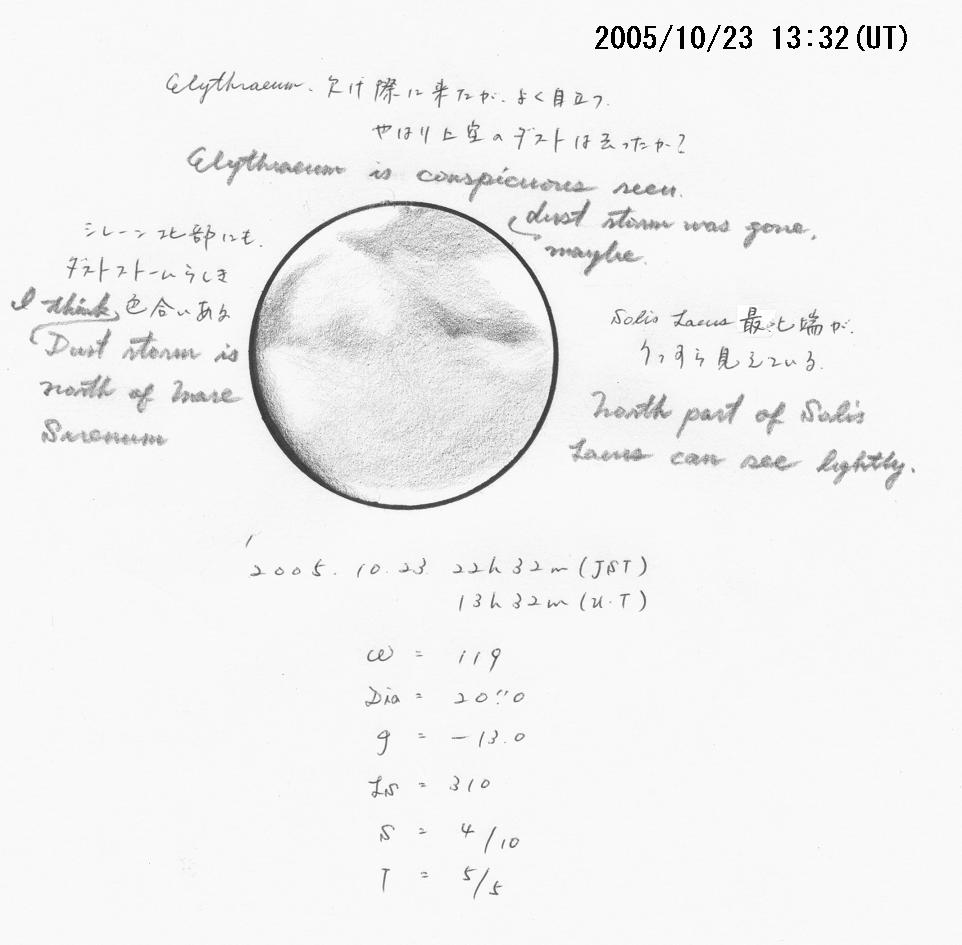 2005/10/23 13:32(UT)
Elythraeum、欠け際に来たが、よく目立つ.
やはり上空のダストは去ったか?
Elythraeum is conspicuous seen.
dust storm was gone,
maybe.
シレーン北部にも、
ダストストームらしき
色合いある
I think
Dust storm is
north of Mare
Sirenum
Solis Lacus 最北端が、
うっすら見えている.
North part of Solis
Lacus can see lightly.
2005. 10. 23 22h 32m (JST)
13h 32m (U.T)
ω = 119
Dia = 20".0
φ = -13.0
Ls = 310
S = 4/10
T = 5/5